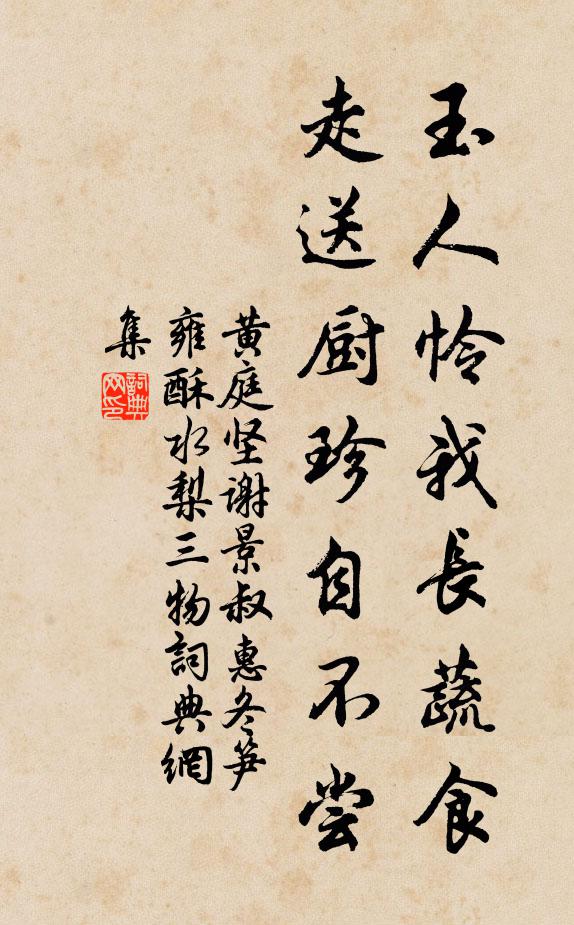 玉人怜我長蔬食
走送厨珍自不尝
黄庭坚谢景叔惠冬笋
雍酥水梨三物詞典網
集
詞典网印